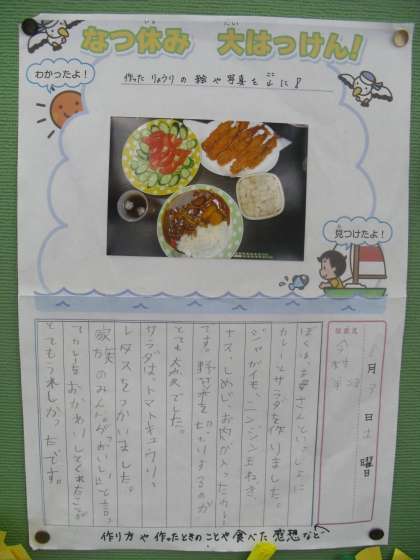 なつ休み 大はっけん!
わかったよ!
作ったりょうりの絵や写真を
見つけたよ!
日
曜
ぼくは、お母さんといっしょに
カレーとサラダを作りました。
ジャガイモ、ニンジン、玉ねぎ、
ナス、しめじ、お肉が入ったカレー
です。野さいを
とても大へんでした。
サラダは、トマトキュウリ、
レタスをつかいました。
家族のみんなが「おいしい」と言っ
てカレーをおかわりしてくれたことが
とてもうれしかったです。
作り方や作ったときのことや食べた感想など